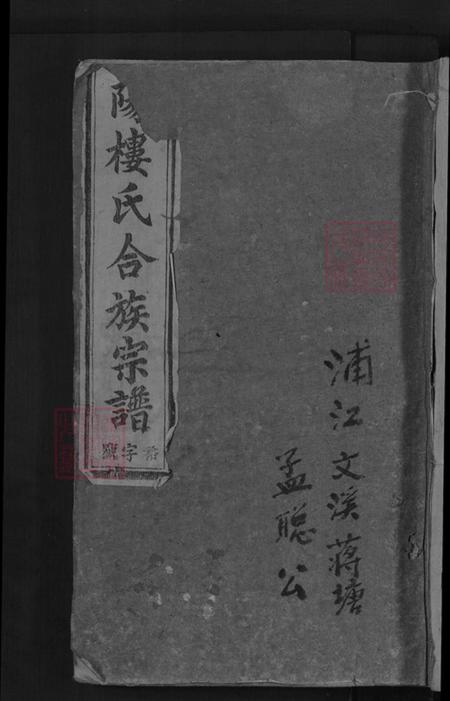 陽樓氏合族宗譜
字號
浦江文溪蔣塘
孟聰公